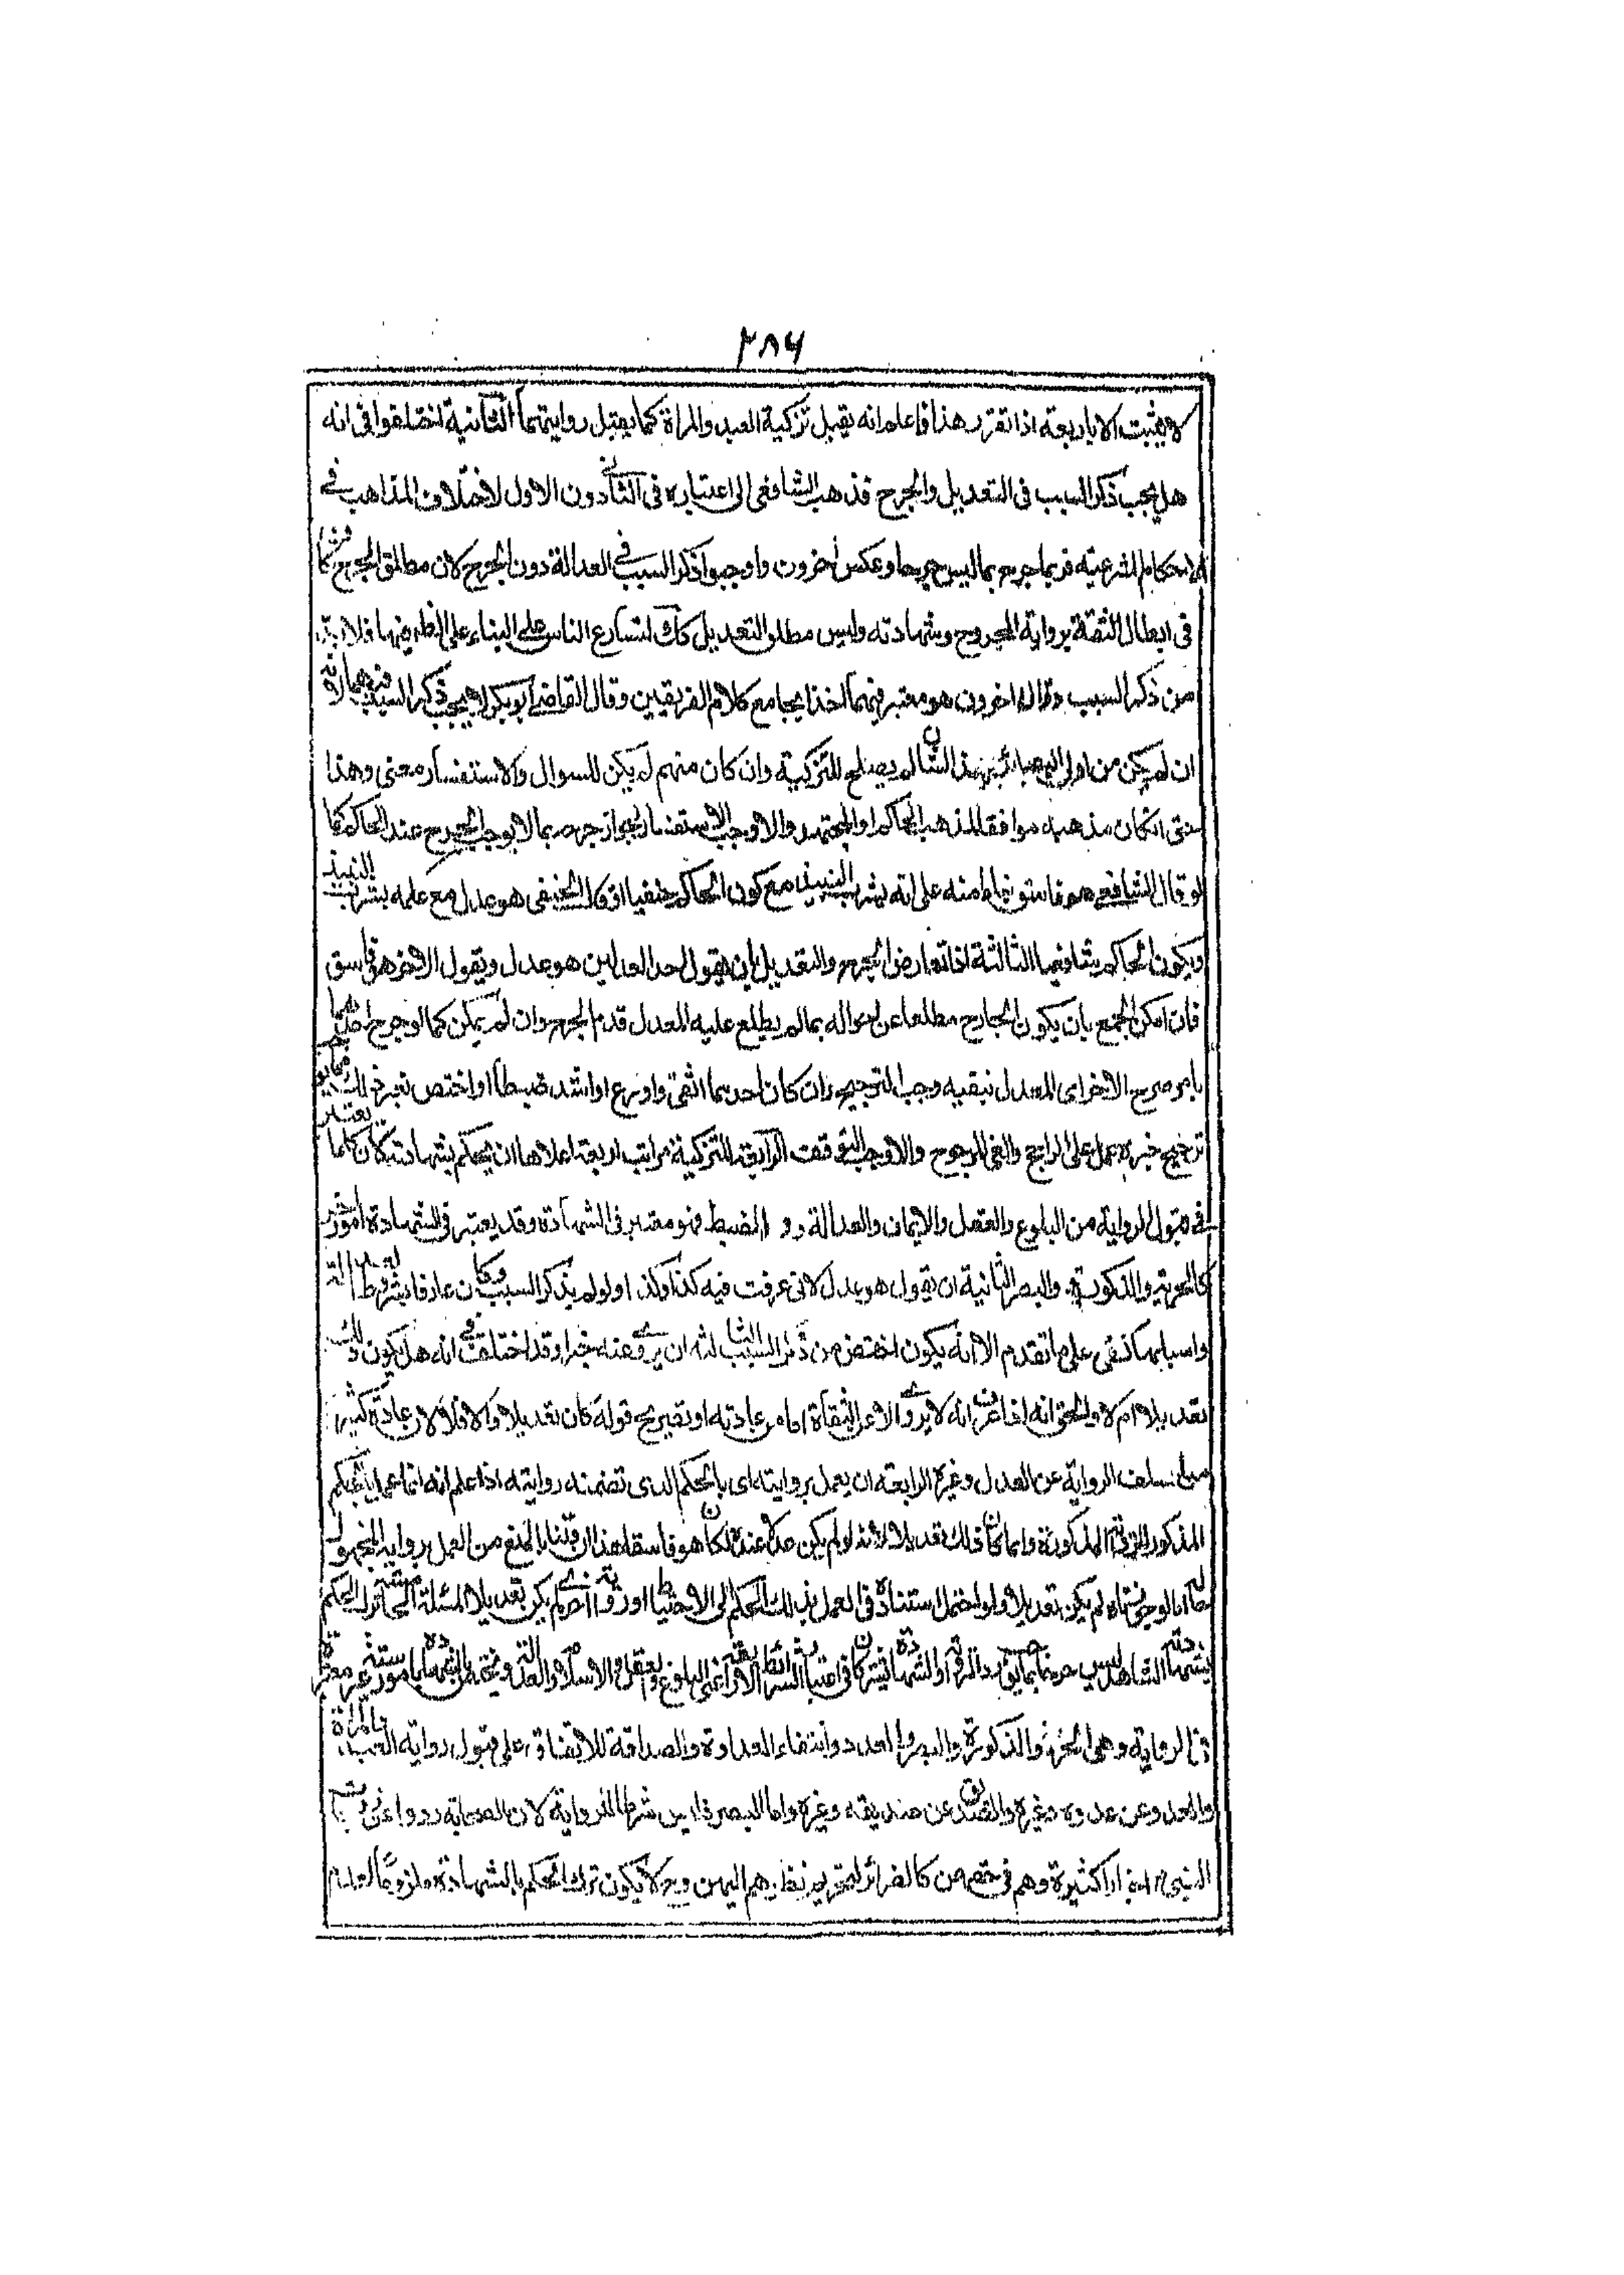 ٢٨٦
لا يثبت الا باربعة اذا تقرر هذا فاعلم انه يقبل تزكية العبد والمراة كما يقبل روايتهما الثانية اختلفوا فى انه
هل يجب ذكر السبب فى التعديل والجرح فذهب الشافعى الى اعتباره فى الثانى دون الاول لاختلاف المذاهب فى
الاحكام الشرعية فربما جرح بما ليس جرحا وعكس اخرون واوجبوا ذكر السبب فى العدالة دون الجرح لان مطلق الجرح
فى ابطال الثقة برواية المجروح وشهادته وليس مطلق التعديل كك لتسارع الناس على البناء على الظاهر فيها فلابد
من ذكر السبب وقال اخرون هو معتبر فيهما اخذا بمجامع كلام الفريقين وقال القاضى ابو بكر لا يجب ذكر السبب فيهما لانه
ان لم يكن من اولى البصائر بهذا الشان لم يصلح للتزكية وان كان منهم لم يكن للسوال والاستفسار معنى وهذا
حق ان كان مذهبه موافقا لمذهب الحاكم او المجتهد والا وجب الاستفسار لجواز جرحه بما لا يوجب الجرح عند الحاكم كما
لو قال الشافعى هو فاسق بناء منه على انه يشرب النبيذ مع كون الحاكم حنفيا او قال الحنفى هو عدل مع علمه بشربه النبيذ
ويكون الحاكم شافعيا الثالثة اذا تعارض الجرح والتعديل بان يقول احد العدلين هو عدل ويقول الاخر هو فاسق
فان امكن الجمع بان يكون الجارح مطلعا عن احواله بما لم يطلع عليه المعدل قدم الجرح وان لم يمكن كما لو جرح احدهما
بامر صرح الاخر اى المعدل بنفيه وجب الترجيح فان كان احدهما اتقى واورع او اشد ضبطا او اختص بغير ذلك مما يوجب
ترجيح خبره عمل على الراجح والغى المرجوح والا وجب التوقف الرابعة للتزكية مراتب اربعة اعلاها ان يحكم بشهادته لان كلما يعتبر
فى قبول الرواية من البلوغ والعقل والايمان والعدالة والضبط فهو معتبر فى الشهادة وقد يعتبر فى الشهادة امور اخر
كالحرية والذكورة والبصر الثانية ان يقول هو عدل لانى عرفت فيه كذا وكذا ولو لم يذكر السبب وكان عارفا بشروط العدالة
واسبابها كفى على ما تقدم الا انه يكون اخفض من ذكر السبب الثالثة ان يروى عنه خبرا وقد اختلف فى انه هل يكون ذلك
تعديلا ام لا والحق انه اذا عرف انه لا يروى الا عن الثقاة اما من عادته او تصريح قوله كان تعديلا والا فلا لان عادة كثير
من السلف الرواية عن العدل وغيره الرابعة ان يعمل بروايته اى بالحكم الذى تضمنه روايته اذا علم انه انما عمل بالحكم
المذكور للرواية المذكورة وانما كان ذلك تعديلا لانه لو لم يكن عدلا عنده لكان هو فاسقا هذا ان قلنا بالمنع من العمل برواية المجهول
اما لو جوزناه لم يكن تعديلا ولو احتمل استناده فى العمل بذلك الحكم الى الاحتياط او رواية اخرى لم يكن تعديلا المسئلة ترك الحكم
بشهادة الشاهد ليس جرحا
فى الرواية وهى الحرية والذكورة والبصر والعدد وانتفاء العداوة والصداقة للاتفاق على قبول رواية العبد والمراة
والعدو عن عدوه وغيره والصديق عن صديقه وغيره واما البصر فليس شرطا للرواية لان الصحابة رووا عن
النبى اخبارا كثيرة وهم فى حقهن كالضرائر لتحريم نظرهم اليهن وح لا يكون ترك الحكم بالشهادة ملزوما لعدم